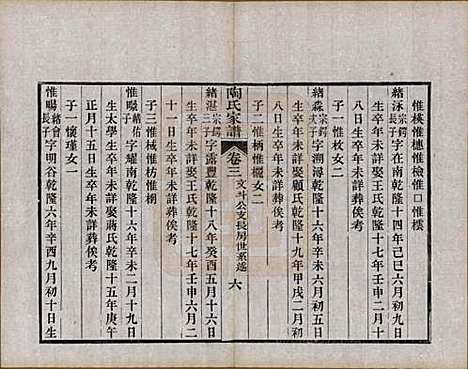 惟楧惟橞惟檢惟囗惟檏
緒泳宗鍔長子字在南乾隆十四年己巳六月初九日
生卒年未詳娶王氏乾隆十七年壬申二月十
八日生卒年未詳葬俟考
子一惟枚女二
緒淼宗鍔次子字溯潯乾隆十六年辛未六月初五日
生卒年未詳娶顧氏乾隆十九年甲戌二月初
八日生卒年未詳葬俟考
子二惟柄惟欐女二
陶氏家譜
卷三
文斗公支長房世系述
六
緒湛宗鍔三子字露豐乾隆十八年癸酉五月十六日
生卒年未詳娶王氏乾隆十七年壬申六月二
十一日生卒年未詳葬俟考
子三惟楲惟枋惟榈
惟暻緒會次子字耀南乾隆十六年辛未二月十九日
生太學生卒年未詳娶蔣氏乾隆十五年庚午
正月十五日生卒年未詳葬俟考
子一懷瑾女一
惟暘緒會長子字明谷乾隆六年辛酉九月初十日生